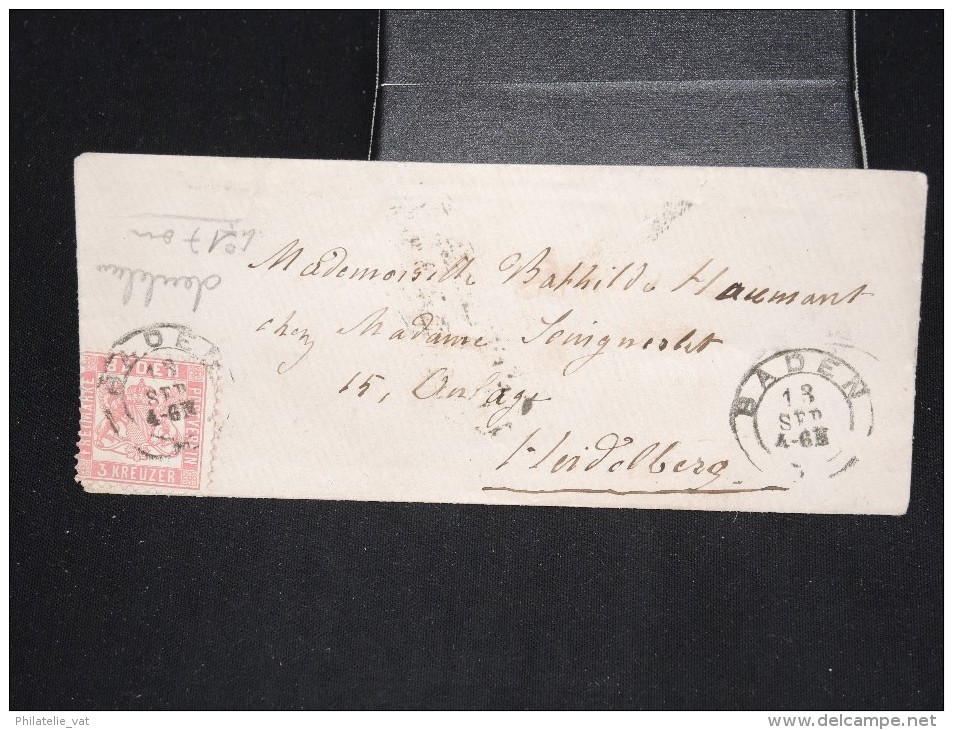 Mademoiselle Bathilde Haumant
chez Madame
15, Anlage
Heidelberg
BADEN
13
SEP
4-6N
BADEN
13
SEP
4-6N
BADEN
FREIMARKE
POSTVEREIN
3 KREUZER
n°17 ou
Philatelie_vat
www.delcampe.net